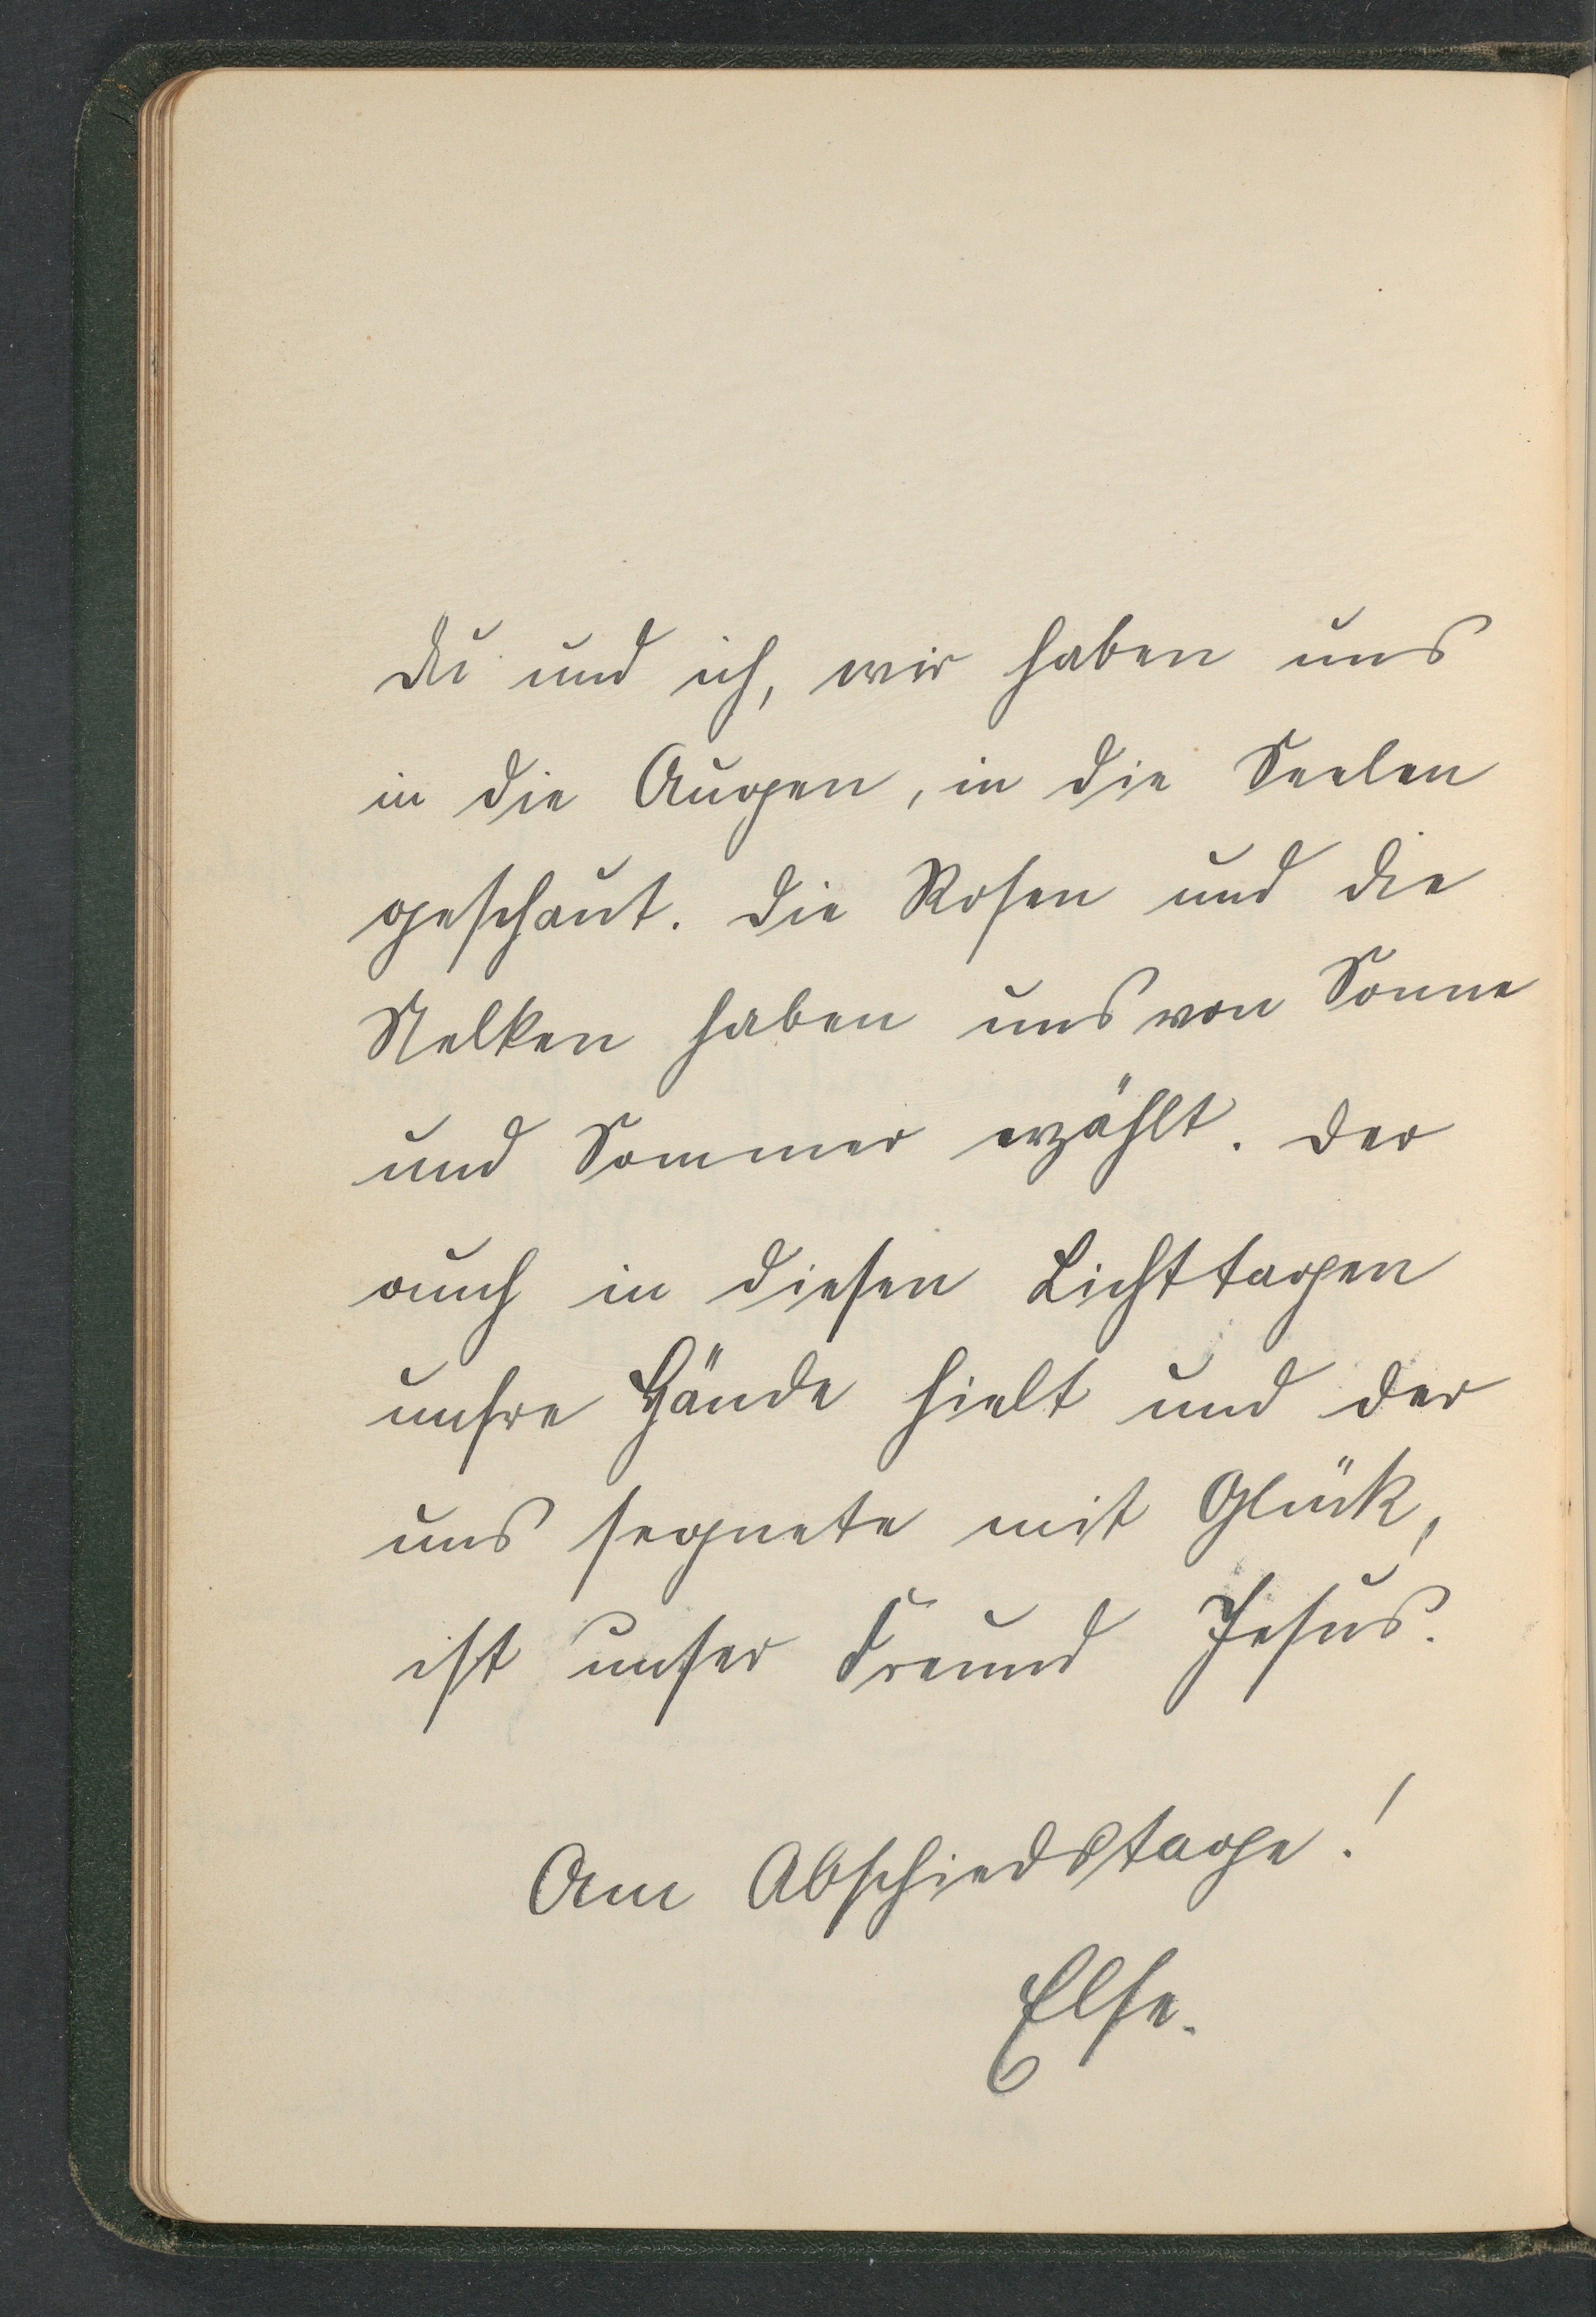 Du und ich, wir haben uns
in die Augen, in die Seelen
geschaut. Die Rosen und die
Nelken haben uns von Sonne
und Sommer erzählt. Der
auch in diesen Lichttagen
unsre Hände hielt und der
uns segnete mit Glück,
ist unser Freund Jesus.
Am Abschiedstage!
Else.